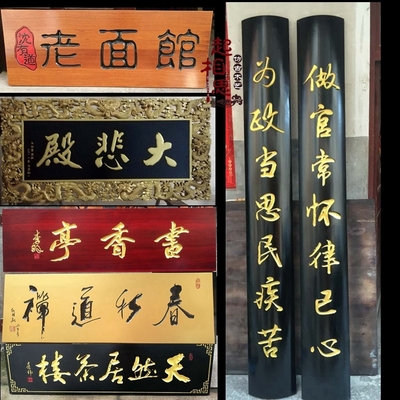 沈有道
老面館
大悲殿
書香亭
春秋道禪
天然居茶樓
做官常怀律己心
为政当思民疾苦